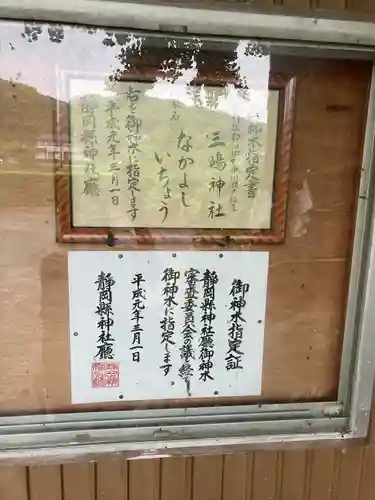 御神木指定書
三嶋神社
なかよし
いちょう
右を御神木に指定します
平成元年三月一日
静岡縣神社廳
御神木指定証
静岡縣神社廳御神木
審査委員会の議を経て
御神木に指定します
平成元年三月一日
静岡縣神社廳